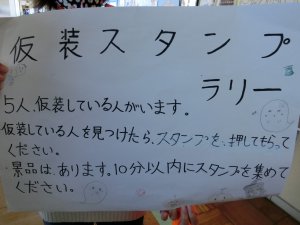 仮装スタンプ
ラリー
5人仮装している人がいます。
仮装している人を見つけたら、スタンプを押してもらって
ください。
景品は、あります。10分以内にスタンプを集めて
ください。